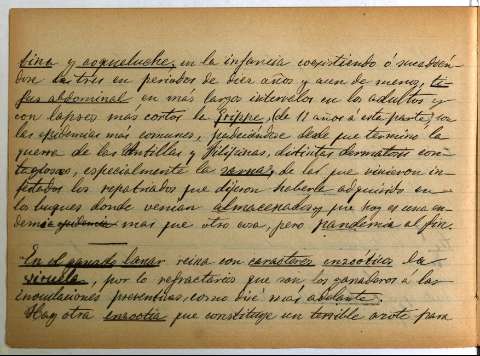 tina y coqueluche, en la infancia coexistiendo ó sucedién
dose las tres en periodos de diez años y aun de menos, ti
fus abdominal en más largos intervalos en los adultos y
con lapsos más cortos la grippe, (de 11 años á esta parte) son
las epidemias más comunes, padeciéndose desde que terminó la
guerra de las Antillas y Filipinas, distintas dermatosis con
tagiosas, especialmente la sarna, de la que vinieron in-
fectados los repatriados que dijeron haberla adquirido en
los buques donde venían almacenados y que hoy es una en
demia epidemia más que otra cosa, pero pandemia al fin.
En el ganado lanar reina con caracteres enzoóticos la
viruela, por lo refractarios que son los ganaderos á las
inoculaciones preventivas, como diré más adelante.
Hay otra enzootia que constituye un terrible azote para